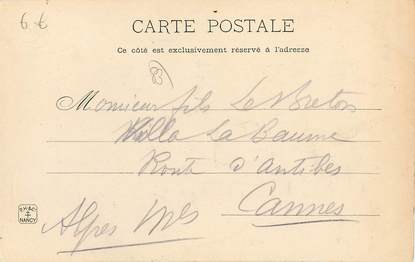 6 €
CARTE POSTALE
Ce côté est exclusivement réservé à l'adresse
83
Monsieur fils Le Breton
Villa La Baume
Route d'Antibes
Cannes
Alpes Mes
NANCY